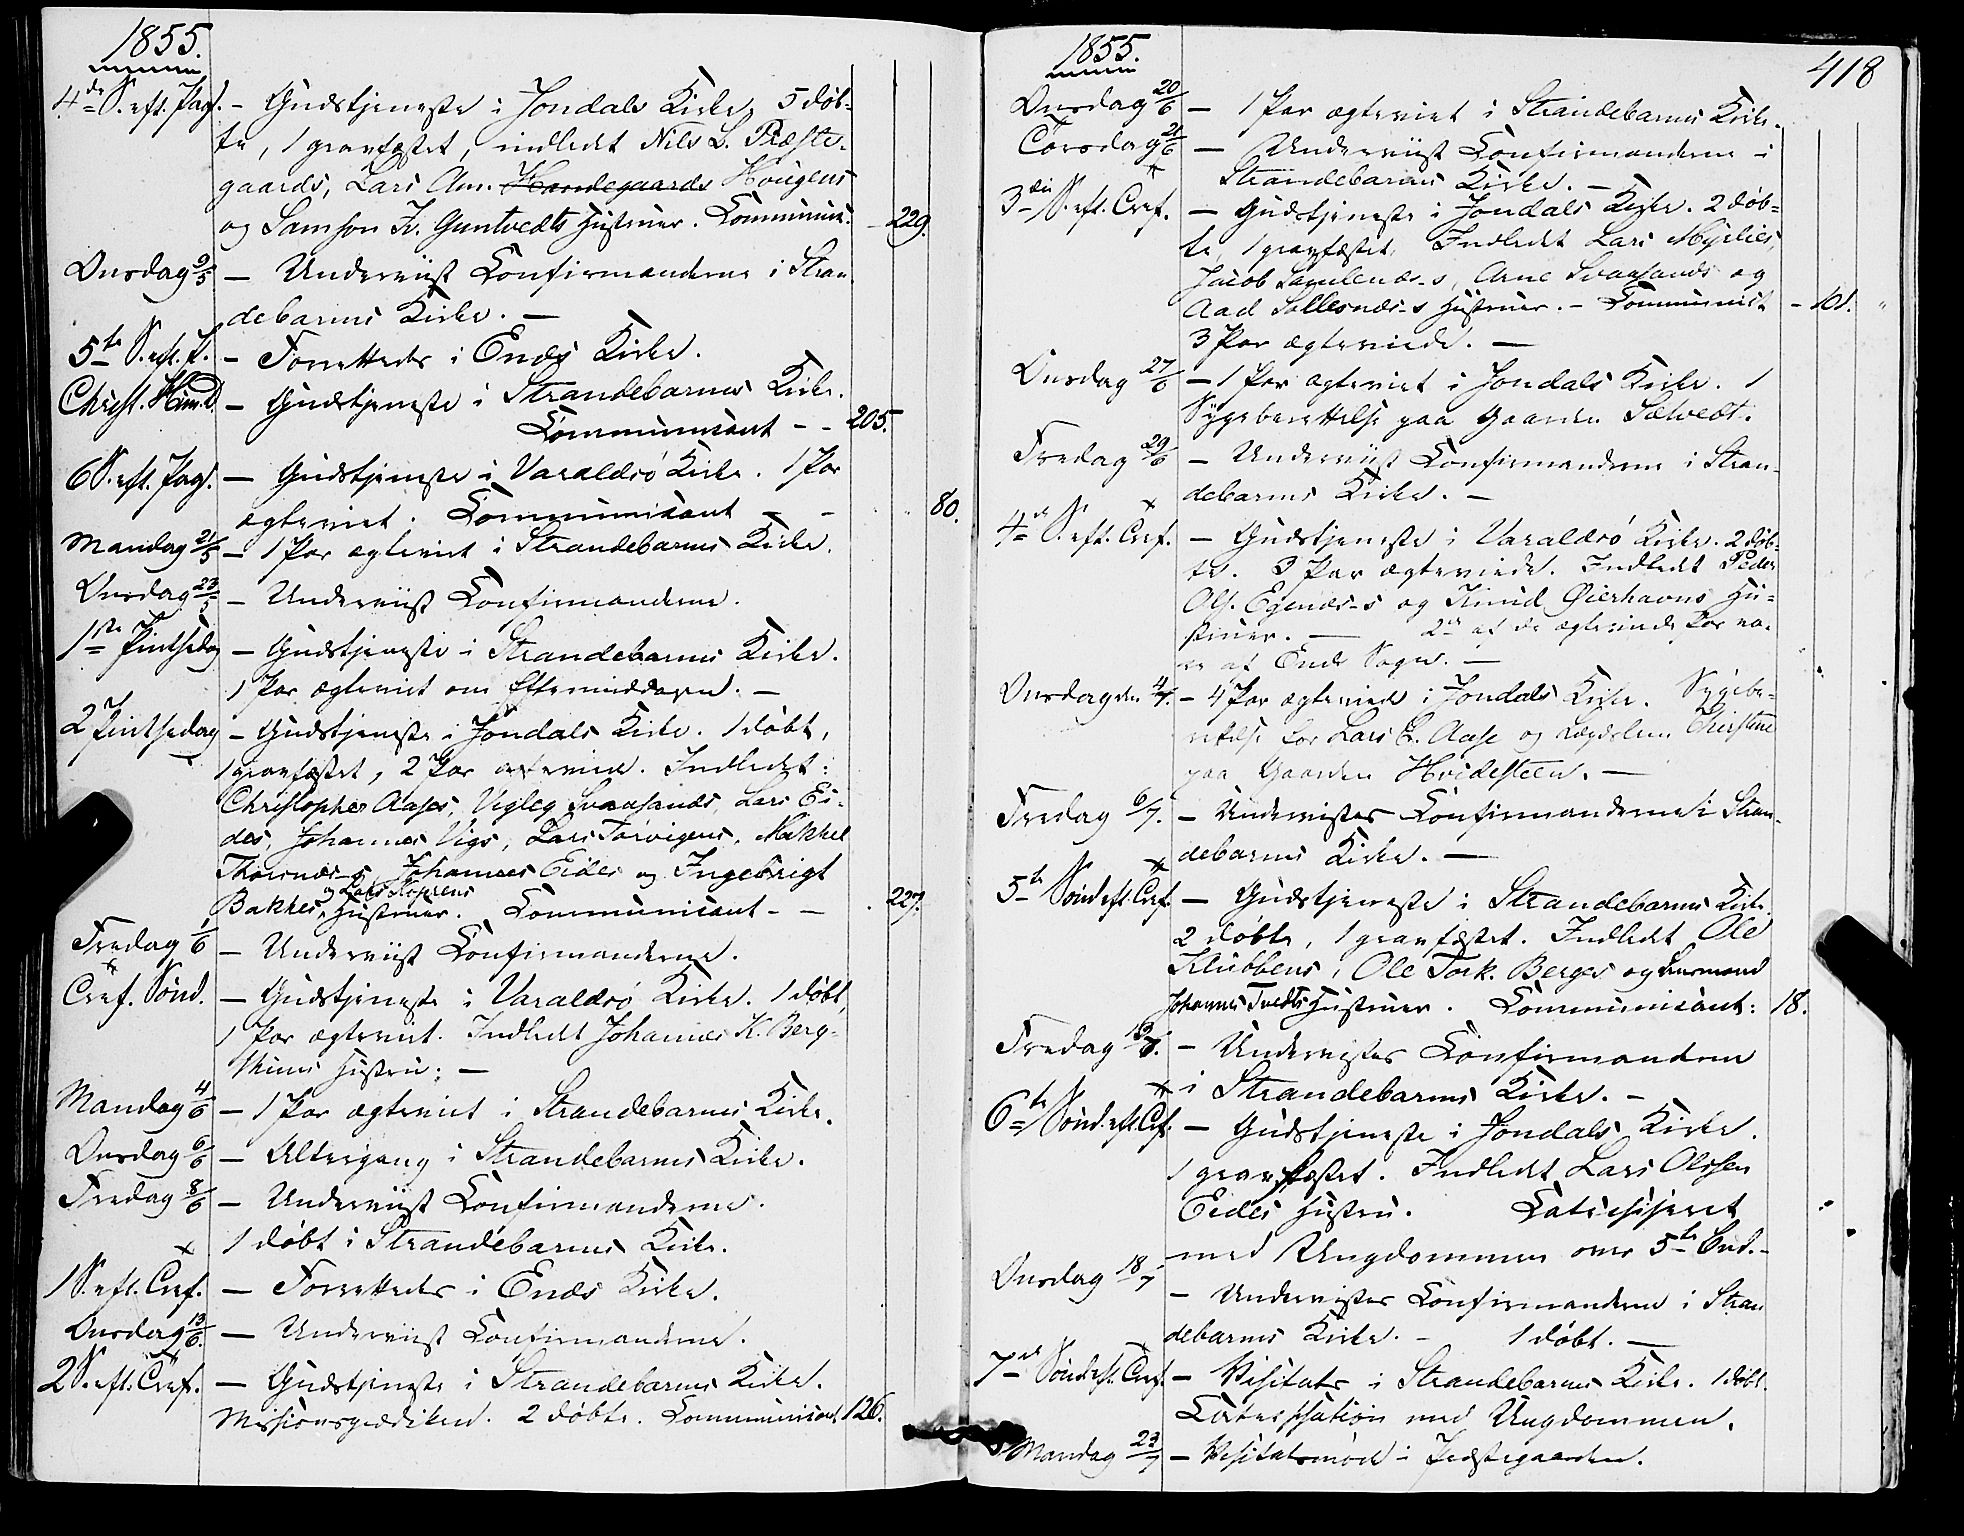 1855.
4de S. eft. Pasf. – Gudstjeneste i Jondals Kirke, 5 døb-
te, 1 gravfæstet, indledt Nils L. Præste-
gaards, Lars Am. Haandegaards Hougens
og Samson Fr. Guntvedts Hustruer. Communic. 229.
Onsdag 9/5 – Underviist Confirmanderne i Stran
debarms Kirke. –
5te S. eft. P. – Forrettedes i Enæs Kirke.
Christ. Himlf. – Gudstjeneste i Strandebarms Kirke.
Communicant – – 205.
6 S. eft. Pasf. – Gudstjeneste i Varaldsø Kirke. 1 Par
ægteviet. Communicant – – 80.
Mandag 21/5 – 1 Par ægteviet i Strandebarms Kirke.
Onsdag 23/5 – Underviist Confirmanderne.
1ste Pintsedag – Gudstjeneste i Strandebarms Kirke.
1 Par ægteviet om Eftermiddagen. –
2 Pintsedag – Gudstjeneste i Jondals Kirke. 1 døbt,
1 gravfæstet, 2 Par ægteviede. Indledet:
Christopher Aases, Vigleg Svaasands, Lars Ei-
des, Johannes Vigs, Lars Torvigens, Mikkel
Thorsnæs-s, Johannes Eides og Ingebrigt
og Lars Koprens
Bakkes, Hustruer. Communicant – – 227.
Fredag 1/6 – Underviist Confirmanderne.
Tref. Sønd. – Gudstjeneste i Varaldsø Kirke. 1 døbt,
1 Par ægteviet. Indledt Johannes K. Berg-
thuns Hustru. –
Mandag 4/6 – 1 Par ægteviet i Strandebarms Kirke.
Onsdag 6/6 – Altergang i Strandebarms Kirke.
Fredag 8/6 – Underviist Confirmanderne.
1 døbt i Strandebarms Kirke.
1 S. eft. Tref. – Forrettedes i Enæs Kirke.
Onsdag 13/6. – Underviist Confirmanderne.
2 S. eft. Tref. – Gudstjeneste i Strandebarms Kirke.
Missionsprædiken. 2 døbte. Communicant 126.
1855.
418
Onsdag 20/6 – 1 Par ægteviet i Strandebarms Kirke.
Torsdag 21/6 – Underviist Confirmanderne i
Strandebarms Kirke. –
3die S. eft. Tref. – Gudstjeneste i Jondals Kirke. 2 døb-
te, 1 gravfæstet. Indledt Lars Myelies,
Jacob Samlenæs-s, Arne Svaasands og
Aad Sollesnæs-s Hustruer. – Communicant – 101.
3 Par ægteviede. –
Onsdag 27/6 – 1 Par ægteviet i Jondals Kirke. 1
Sygeberettelse paa Gaarden Sælvedt.
Fredag 29/6 – Underviist Confirmanderne i Stran-
debarms Kirke. –
4de S. eft. Tref. – Gudstjeneste i Varaldsø Kirke. 2 døb-
te. 3 Par ægteviede. Indledt Peder
Ols. Egenæs-s og Knud Øierhavns Hu-
struer. – 2de af de ægteviede Par va-
re af Enæs Sogn. –
Onsdag den 4/7. – 4 Par ægteviede i Jondals Kirke. Sygebe-
rettelse for Lars L. Aase og Lægdslem Christine
paa Gaarden Hvidesteen. –
Fredag 6/7. – Undervistes Confirmanderne i Stran-
debarms Kirke. –
5te Sønd. eft. Tref. – Gudstjeneste i Strandebarms Kirke.
2 døbte, 1 gravfæstet. Indledt Ole
Klubbens, Ole Tork. Berges og Huusmand
Johannes Tvedts Hustruer. Communicant: 18.
Fredag 13/7. – Undervistes Confirmanderne
i Strandebarms Kirke. –
6te Sønd. eft. Tref. – Gudstjeneste i Jondals Kirke.
1 gravfæstet. Indledt Lars Olssen
Eides Hustru. Catechiseret
med Ungdommen over 5te Bud. –
Onsdag 18/7 – Undervistes Confirmanderne i Stran
debarms Kirke. – 1 døbt. –
7de Sønd. eft. Tref. – Visitats i Strandebarms Kirke. 1 døbt.
Catechisation med Ungdommen.
Mandag 23/7 – Visitatsmøde i Præstegaarden.